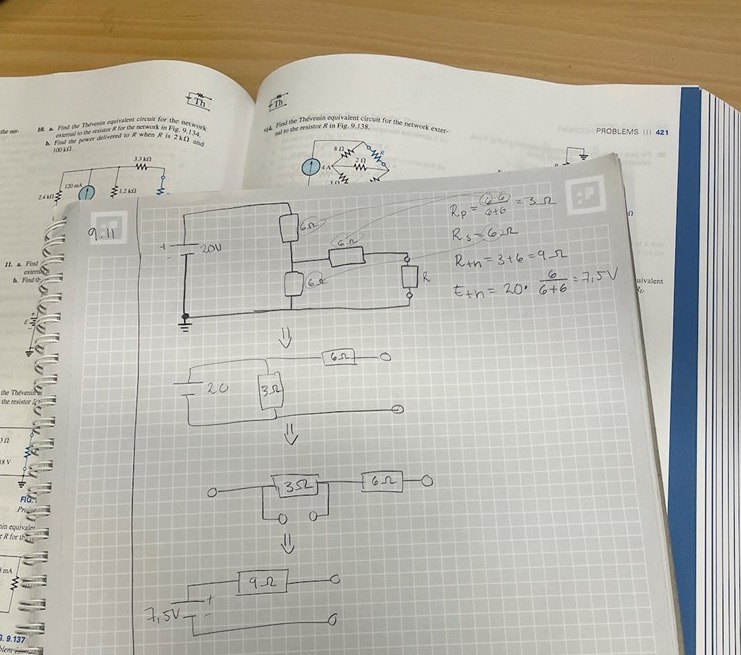 Th
the net-
10. a. Find the Thévenin equivalent circuit for the network
external to the resistor R for the network in Fig. 9.134.
b. Find the power delivered to R when R is 2 kΩ and
100 kΩ.
3.3 kΩ
2.4 kΩ
120 mA
1.2 kΩ
11. a. Find
b. Find
E
the Thévenin
the resistor
3 Ω
18 V
FIG.
in equivale
R for th
mA
G. 9.137
Th
Find the Thévenin equivalent circuit for the network exter-
nal to the resistor R in Fig. 9.138.
PROBLEMS ||| 421
8 Ω
R
2 Ω
4 A
Ω
uivalent
9.11
+
20V
6Ω
6Ω
6Ω
R
Rp = 6·6 / 6+6 = 3Ω
Rs = 6Ω
Rth = 3+6 = 9Ω
Eth = 20 · 6 / 6+6 = 7,5V
⇓
20
3Ω
6Ω
⇓
3Ω
6Ω
⇓
9Ω
7,5V
+
-